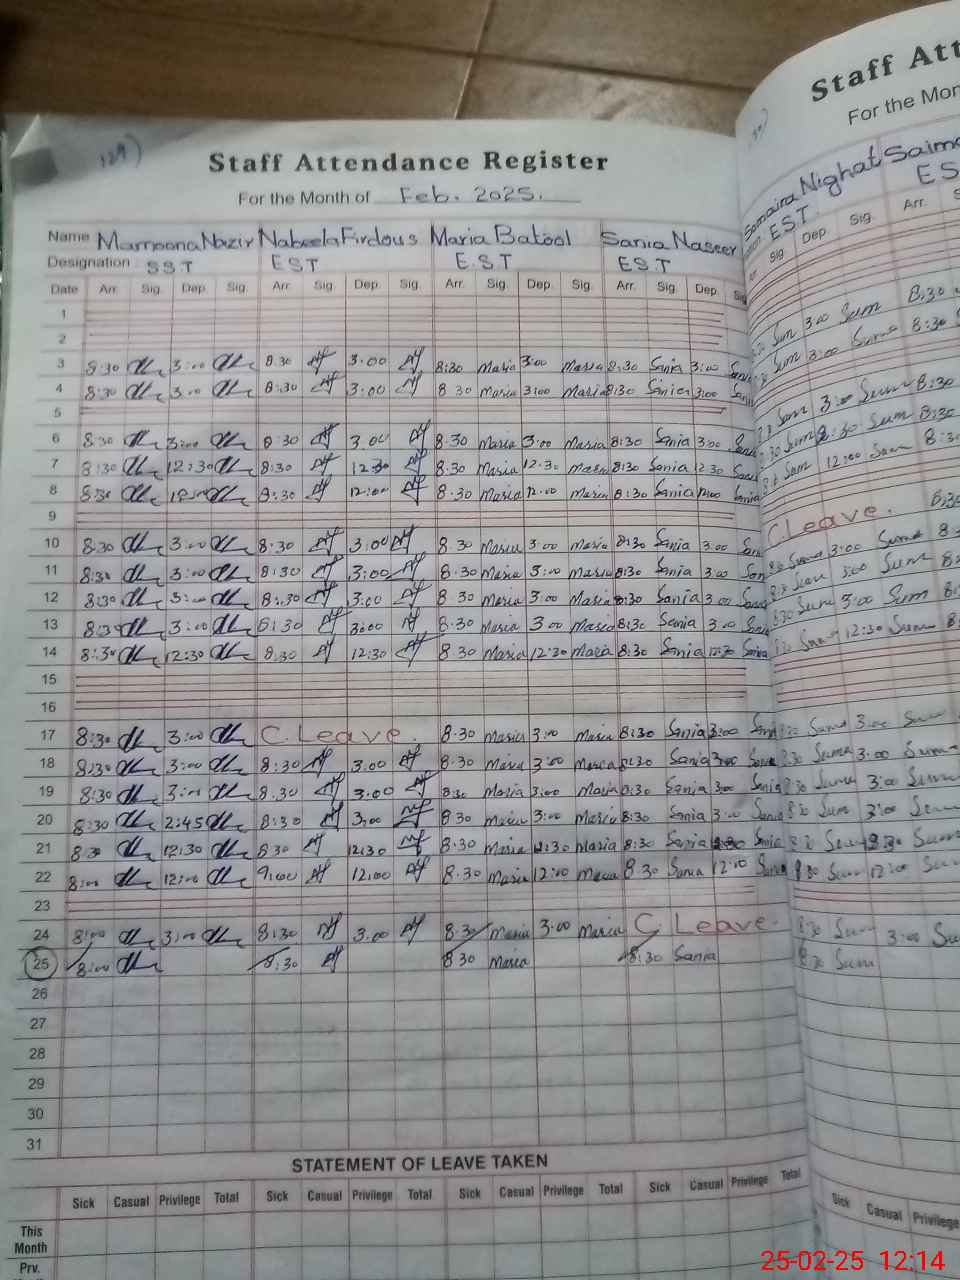 129)
Staff Attendance Register
For the Month of Feb. 2025.
Name Mamoona Nazir Nabeela Firdous Maria Batool Sania Naseer
Designation SST EST E.ST EST
Date Arr. Sig. Dep. Sig. Arr. Sig. Dep. Sig. Arr. Sig. Dep. Sig. Arr. Sig. Dep. Sig
1
2
3 8:30 3:00 8:30 3:00 8:30 Maria 3:00 Maria 8:30 Sania 3:00 Sania
4 8:30 3:00 8:30 3:00 8:30 Maria 3:00 Maria 8:30 Sania 3:00 Sania
5
6 8:30 3:00 8:30 3:00 8:30 Maria 3:00 Maria 8:30 Sania 3:00 Sania
7 8:30 12:30 8:30 12:30 8:30 Maria 12:30 Maria 8:30 Sania 12:30 Sania
8 8:30 12:00 8:30 12:00 8:30 Maria 12:00 Maria 8:30 Sania 12:00 Sania
9
10 8:30 3:00 8:30 3:00 8:30 Maria 3:00 Maria 8:30 Sania 3:00 San
11 8:30 3:00 8:30 3:00 8:30 Maria 3:00 Maria 8:30 Sania 3:00 San
12 8:30 3:00 8:30 3:00 8:30 Maria 3:00 Maria 8:30 Sania 3:00 Sania
13 8:30 3:00 8:30 3:00 8:30 Maria 3:00 Maria 8:30 Sania 3:00 Sania
14 8:30 12:30 8:30 12:30 8:30 Maria 12:30 Maria 8:30 Sania 12:30 Sania
15
16
17 8:30 3:00 C. Leave. 8:30 Maria 3:00 Maria 8:30 Sania 3:00 Sania
18 8:30 3:00 8:30 3:00 8:30 Maria 3:00 Maria 8:30 Sania 3:00 Sania
19 8:30 3:00 8:30 3:00 8:30 Maria 3:00 Maria 8:30 Sania 3:00 Sania
20 8:30 2:45 8:30 3:00 8:30 Maria 3:00 Maria 8:30 Sania 3:00 Sania
21 8:30 12:30 8:30 12:30 8:30 Maria 12:30 Maria 8:30 Sania 12:30 Sania
22 8:00 12:00 9:00 12:00 8:30 Maria 12:00 Maria 8:30 Sania 12:00 Sania
23
24 8:00 3:00 8:30 3:00 8:30 Maria 3:00 Maria C. Leave.
25 8:00 8:30 8:30 Maria 8:30 Sania
26
27
28
29
30
31
STATEMENT OF LEAVE TAKEN
Sick Casual Privilege Total Sick Casual Privilege Total Sick Casual Privilege Total Sick Casual Privilege Total
This
Month
Prv.
Staff Att
For the Mon
Nighat Saima
EST ES
Sig Dep. Sig. Arr. S
Sum 3:00 Sum 8:30
Sum 3:00 Sum 8:30
Sum 3:00 Sum 8:30
Sum 8:30
Sum 12:00 Sum 8:3
C. Leave. 8:30
Sum 3:00 Sum
Sum 3:00 Sum
8:30 Sum 3:00 Sum
Sum 12:30 Sum
Sum 3:00 Sum
8:30 Suma 3:00 Sum
8:30 Sum 3:00 Sum
8:30 Sum 3:00 Sum
Sum
8:30 Sum 12:00 Sum
8:30 Sum 3:00 Su
8:30 Sum
Sick Casual Privilege
25-02-25 12:14